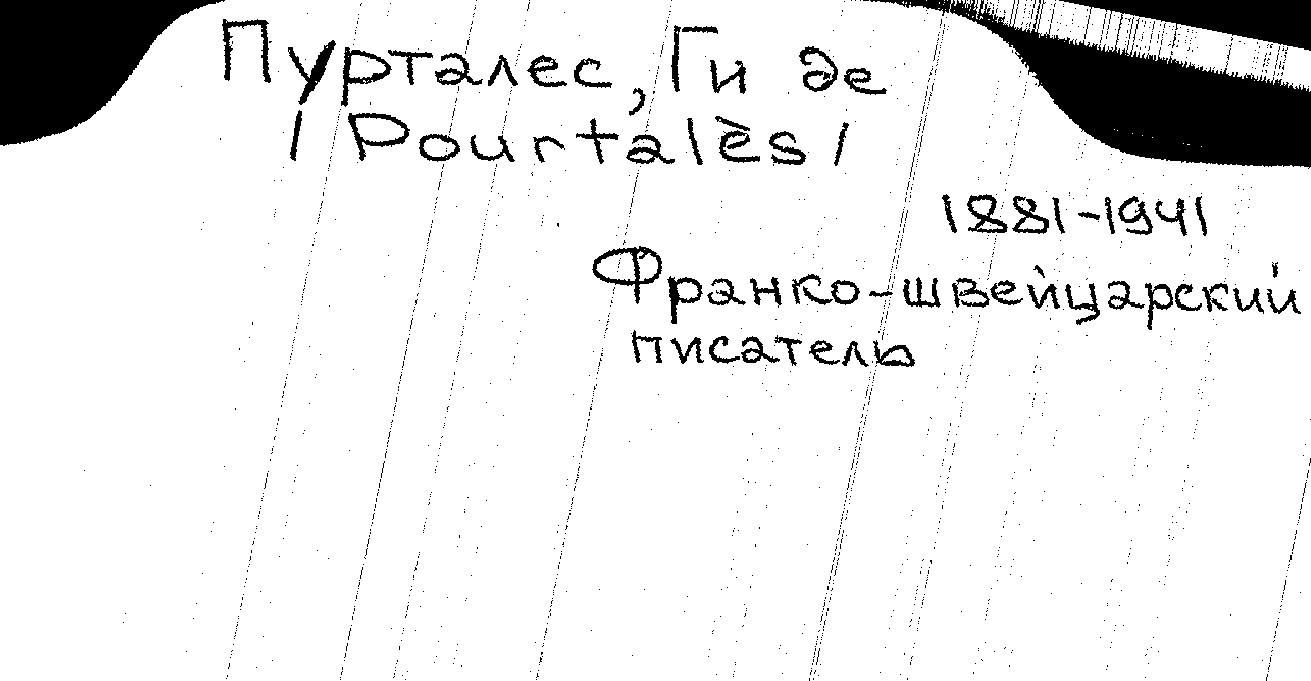 Пурталес, Ги де
/ Pourtalès /
1881-1941
Франко-швейцарский
писатель